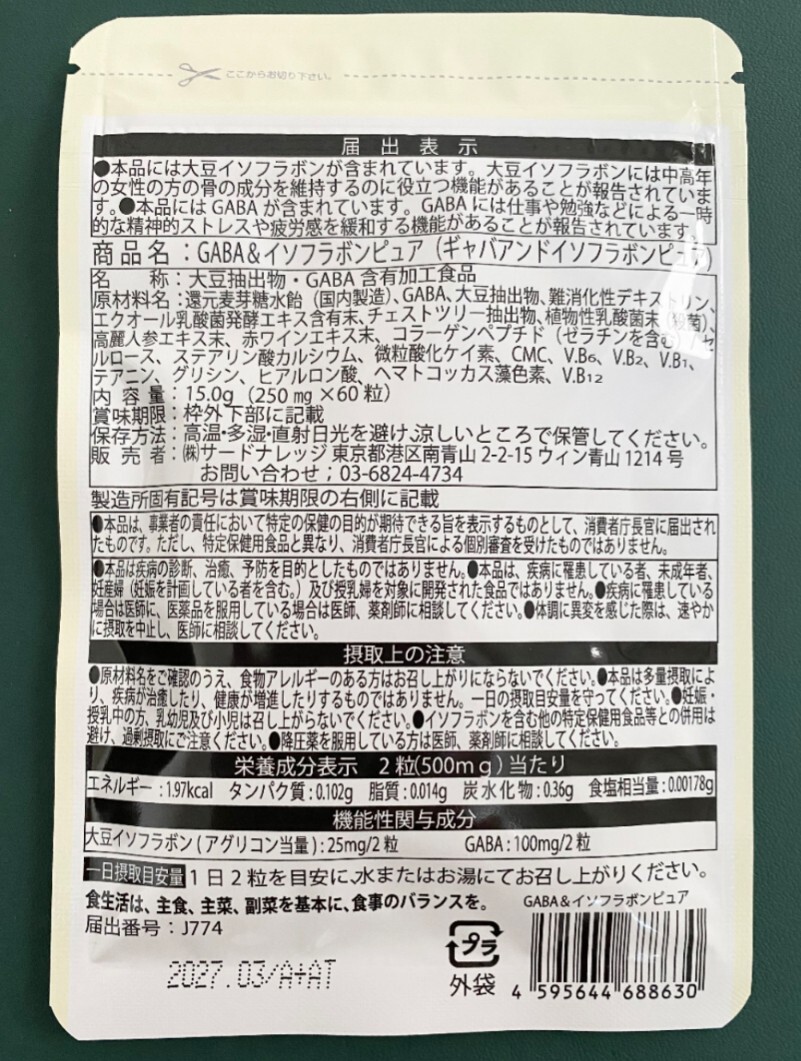 ここからお切り下さい。
届出表示
●本品には大豆イソフラボンが含まれています。大豆イソフラボンには中高年
の女性の方の骨の成分を維持するのに役立つ機能があることが報告されていま
す。●本品にはGABAが含まれています。GABAには仕事や勉強などによる一時
的な精神的ストレスや疲労感を緩和する機能があることが報告されています。
商品名:GABA&イソフラボンピュア(ギャバアンドイソフラボンピュア)
名称:大豆抽出物・GABA含有加工食品
原材料名:還元麦芽糖水飴(国内製造)、GABA、大豆抽出物、難消化性デキストリン、
エクオール乳酸菌発酵エキス含有末、チェストツリー抽出物、植物性乳酸菌末(殺菌)、
高麗人参エキス末、赤ワインエキス末、コラーゲンペプチド(ゼラチンを含む)/セ
ルロース、ステアリン酸カルシウム、微粒酸化ケイ素、CMC、V.B6、V.B2、V.B1、
テアニン、グリシン、ヒアルロン酸、ヘマトコッカス藻色素、V.B12
内容量:15.0g(250mg×60粒)
賞味期限:枠外下部に記載
保存方法:高温・多湿・直射日光を避け、涼しいところで保管してください。
販売者:㈱サードナレッジ 東京都港区南青山2-2-15ウィン青山1214号
お問い合わせ;03-6824-4734
製造所固有記号は賞味期限の右側に記載
●本品は、事業者の責任において特定の保健の目的が期待できる旨を表示するものとして、消費者庁長官に届出され
たものです。ただし、特定保健用食品と異なり、消費者庁長官による個別審査を受けたものではありません。
●本品は疾病の診断、治癒、予防を目的としたものではありません。●本品は、疾病に罹患している者、未成年者、
妊産婦(妊娠を計画している者を含む。)及び授乳婦を対象に開発された食品ではありません。●疾病に罹患している
場合は医師に、医薬品を服用している場合は医師、薬剤師に相談してください。●体調に異変を感じた際は、速やか
に摂取を中止し、医師に相談してください。
摂取上の注意
●原材料名をご確認のうえ、食物アレルギーのある方はお召し上がりにならないでください。●本品は多量摂取によ
り、疾病が治癒したり、健康が増進したりするものではありません。一日の摂取目安量を守ってください。●妊娠・
授乳中の方、乳幼児及び小児は召し上がらないでください。●イソフラボンを含む他の特定保健用食品等との併用は
避け、過剰摂取にご注意ください。●降圧薬を服用している方は医師、薬剤師に相談してください。
栄養成分表示 2粒(500mg)当たり
エネルギー:1.97kcal タンパク質:0.102g 脂質:0.014g 炭水化物:0.36g 食塩相当量:0.00178g
機能性関与成分
大豆イソフラボン(アグリコン当量):25mg/2粒 GABA:100mg/2粒
一日摂取目安量 1日2粒を目安に、水またはお湯にてお召し上がりください。
食生活は、主食、主菜、副菜を基本に、食事のバランスを。
GABA&イソフラボンピュア
届出番号:J774
プラ
外袋
2027.03/A+AT
4 595644 688630